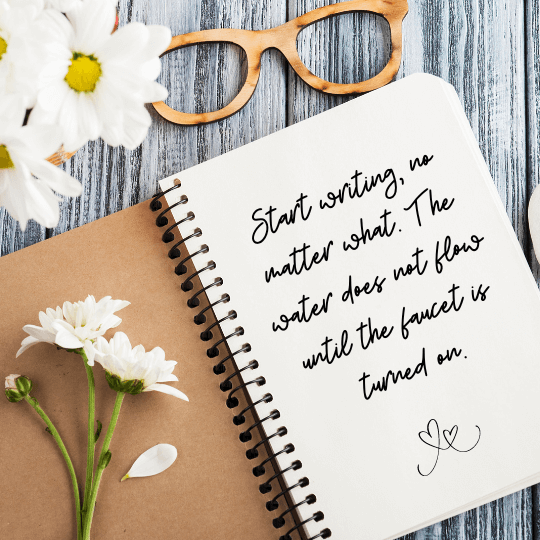 Start writing, no
matter what. The
water does not flow
until the faucet is
turned on.